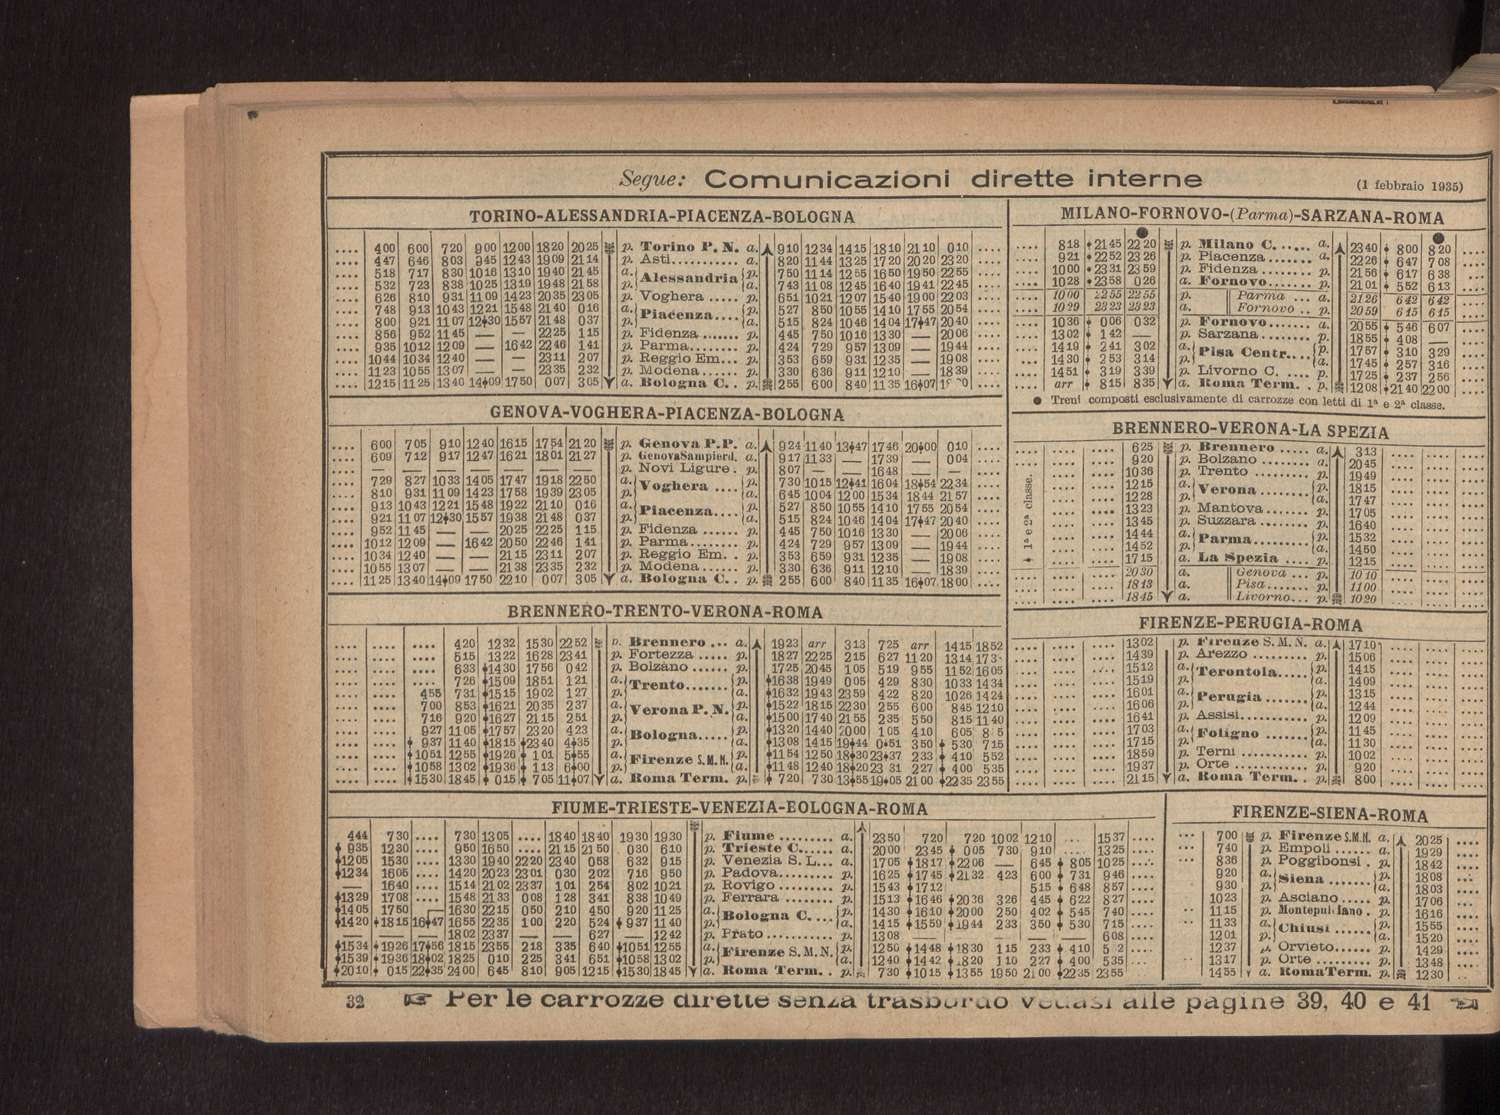 Segue: Comunicazioni dirette interne (1 febbraio 1935)
TORINO-ALESSANDRIA-PIACENZA-BOLOGNA
.... 4 00 6 00 7 20 9 00 12 00 18 20 20 25 p. Torino P. N. a. 9 10 12 34 14 15 18 10 21 10 0 10 ....
.... 4 47 6 46 8 03 9 45 12 43 19 09 21 14 p. Asti........... a. 8 20 11 44 13 25 17 20 20 20 23 20 ....
.... 5 18 7 17 8 30 10 16 13 10 19 40 21 45 a. Alessandria p. 7 50 11 14 12 55 16 50 19 50 22 55 ....
.... 5 32 7 23 8 38 10 25 13 19 19 48 21 58 p. a. 7 43 11 08 12 45 16 40 19 41 22 45 ....
.... 6 26 8 10 9 31 11 09 14 23 20 35 23 05 p. Voghera ..... p. 6 51 10 21 12 07 15 40 19 00 22 03 ....
.... 7 48 9 13 10 43 12 21 15 48 21 40 0 16 a. Piacenza.... p. 5 27 8 50 10 55 14 10 17 55 20 54 ....
.... 8 00 9 21 11 07 12 30 15 57 21 48 0 37 p. a. 5 15 8 24 10 46 14 04 17 47 20 40 ....
.... 8 56 9 52 11 45 — — 22 25 1 15 p. Fidenza ...... p. 4 45 7 50 10 16 13 30 — 20 06 ....
.... 9 35 10 12 12 09 — 16 42 22 46 1 41 p. Parma........ p. 4 24 7 29 9 57 13 09 — 19 44 ....
.... 10 44 10 34 12 40 — — 23 11 2 07 p. Reggio Em... p. 3 53 6 59 9 31 12 35 — 19 08 ....
.... 11 23 10 55 13 07 — — 23 35 2 32 p. Modena...... p. 3 30 6 36 9 11 12 10 — 18 39 ....
.... 12 15 11 25 13 40 14 09 17 50 0 07 3 05 a. Bologna C. . p. 2 55 6 00 8 40 11 35 16 07 ....
GENOVA-VOGHERA-PIACENZA-BOLOGNA
.... 6 00 7 05 9 10 12 40 16 15 17 54 21 20 p. Genova P.P. a. 9 24 11 40 13 47 17 46 20 00 0 10 ....
.... 6 09 7 12 9 17 12 47 16 21 18 01 21 27 p. Genova Sampierd. a. 9 17 11 33 — 17 39 — 0 04 ....
.... — — — — — — — p. Novi Ligure . p. 8 07 — — 16 48 — — ....
.... 7 29 8 27 10 33 14 05 17 47 19 18 22 50 a. Voghera .... p. 7 30 10 15 12 41 16 04 18 54 22 34 ....
.... 8 10 9 31 11 09 14 23 17 58 19 39 23 05 p. a. 6 45 10 04 12 00 15 34 18 44 21 57 ....
.... 9 13 10 43 12 21 15 48 19 22 21 10 0 16 a. Piacenza.... p. 5 27 8 50 10 55 14 10 17 55 20 54 ....
.... 9 21 11 07 12 30 15 57 19 38 21 48 0 37 p. a. 5 15 8 24 10 46 14 04 17 47 20 40 ....
.... 9 52 11 45 — — 20 25 22 25 1 15 p. Fidenza ..... p. 4 45 7 50 10 16 13 30 — 20 06 ....
.... 10 12 12 09 — 16 42 20 50 22 46 1 41 p. Parma........ p. 4 24 7 29 9 57 13 09 — 19 44 ....
.... 10 34 12 40 — — 21 15 23 11 2 07 p. Reggio Em. . p. 3 53 6 59 9 31 12 35 — 19 08 ....
.... 10 55 13 07 — — 21 38 23 35 2 32 p. Modena..... p. 3 30 6 36 9 11 12 10 — 18 39 ....
.... 11 25 13 40 14 09 17 50 22 10 0 07 3 05 a. Bologna C. . p. 2 55 6 00 8 40 11 35 16 07 18 00 ....
BRENNERO-TRENTO-VERONA-ROMA
.... .... .... 4 20 12 32 15 30 22 52 p. Brennero ... a. 19 23 arr 3 13 7 25 arr 14 15 18 52
.... .... .... 5 15 13 22 16 28 23 41 p. Fortezza ..... p. 18 27 22 25 2 15 6 27 11 20 13 14
.... .... .... 6 33 14 30 17 56 0 42 p. Bolzano ...... p. 17 25 20 45 1 05 5 19 9 55 11 52 16 05
.... .... .... 7 26 15 09 18 51 1 21 a. Trento....... p. 16 38 19 49 0 05 4 29 8 30 10 33 14 34
.... .... 4 55 7 31 15 15 19 02 1 27 p. a. 16 32 19 43 23 59 4 22 8 20 10 26 14 24
.... .... 7 00 8 53 16 21 20 35 2 37 a. Verona P. N. p. 15 22 18 15 22 30 2 55 6 00 8 45 12 10
.... .... 7 16 9 20 16 27 21 15 2 51 p. a. 15 00 17 40 21 55 2 35 5 50 8 15 11 40
.... .... 9 27 11 05 17 57 23 20 4 23 a. Bologna..... p. 13 20 14 40 20 00 1 05 4 10 6 05
.... .... 9 37 11 40 18 15 23 40 4 35 p. a. 13 08 14 15 19 44 0 51 3 50 5 30 7 15
.... .... 10 51 12 55 19 26 1 01 5 55 a. Firenze S.M.N. p. 11 54 12 50 18 30 23 37 2 33 4 10 5 52
.... .... 10 58 13 02 19 36 1 13 6 00 p. a. 11 48 12 40 18 20 23 31 2 27 4 00 5 35
.... .... 15 30 18 45 0 15 7 05 11 07 a. Roma Term. p. 7 20 7 30 13 55 19 05 21 00 22 35 23 55
FIUME-TRIESTE-VENEZIA-BOLOGNA-ROMA
4 44 7 30 .... 7 30 13 05 .... 18 40 18 40 19 30 19 30 p. Fiume ......... a. 23 50 7 20 7 20 10 02 12 10 ... 15 37 ....
9 35 12 30 .... 9 50 16 50 .... 21 15 21 50 0 30 6 10 p. Trieste C...... a. 20 00 23 45 0 05 7 30 9 10 .... 13 25 ....
12 05 15 30 .... 13 30 19 40 22 20 23 40 0 58 6 32 9 15 p. Venezia S. L... a. 17 05 18 17 22 06 — 6 45 8 05 10 25 ....
12 34 16 05 .... 14 20 20 23 23 01 0 30 2 02 7 16 9 50 p. Padova........ p. 16 25 17 45 21 32 4 23 6 00 7 31 9 46 ....
— 16 40 .... 15 14 21 02 23 37 1 01 2 54 8 02 10 21 p. Rovigo ........ p. 15 43 17 12 5 15 6 48 8 57 ....
13 29 17 08 .... 15 48 21 33 0 08 1 28 3 41 8 38 10 49 p. Ferrara ....... p. 15 13 16 46 20 36 3 26 4 45 6 22 8 27 ....
14 05 17 50 — 16 30 22 15 0 50 2 10 4 50 9 20 11 25 a. Bologna C. ... p. 14 30 16 10 20 00 2 50 4 02 5 45 7 40 ....
14 20 18 15 16 47 16 55 22 35 1 00 2 20 5 24 9 37 11 40 p. a. 14 15 15 59 19 44 2 33 3 50 5 30 7 15 ....
— — — 18 02 23 37 — — 6 27 — 12 42 p. Prato ........... p. 13 08 — — — — — 6 08 ....
15 34 19 26 17 56 18 15 23 55 2 18 3 35 6 40 10 51 12 55 a. Firenze S. M. N. p. 12 50 14 48 18 30 1 15 2 33 4 10 ....
15 39 19 36 18 02 18 25 0 10 2 25 3 41 6 51 10 58 13 02 p. a. 12 40 14 42 18 20 1 10 2 27 4 00 5 35 ....
20 10 0 15 22 35 24 00 6 45 8 10 9 05 12 15 15 30 18 45 a. Roma Term. . p. 7 30 10 15 13 55 19 50 21 00 22 35 23 55 ....
MILANO-FORNOVO-(Parma)-SARZANA-ROMA
.... 8 18 21 45 22 20 p. Milano C. ..... a. 23 40 8 00 8 20 ....
.... 9 21 22 52 23 26 p. Piacenza ....... a. 22 26 6 47 7 08 ....
.... 10 00 23 31 23 59 p. Fidenza ........ p. 21 56 6 17 6 38 ....
.... 10 28 23 58 0 26 a. Fornovo....... p. 21 01 5 52 6 13 ....
.... 10 00 22 55 22 55 p. Parma ... a. 21 26 6 42 6 42 ....
.... 10 29 23 23 23 23 a. Fornovo .. p. 20 59 6 15 6 15 ....
.... 10 36 0 06 0 32 p. Fornovo....... a. 20 55 5 46 6 07 ....
.... 13 02 1 42 — p. Sarzana........ p. 18 55 4 08 — ....
.... 14 19 2 41 3 02 a. Pisa Centr... p. 17 57 3 10 3 29 ....
... 14 30 2 53 3 14 p. a. 17 45 2 57 3 16 ....
.... 14 51 3 19 3 39 p. Livorno C. .... p. 17 25 2 37 2 56 ....
.... arr 8 15 8 35 a. Roma Term. . p. 12 08 21 40 22 00 ....
● Treni composti esclusivamente di carrozze con letti di 1ª e 2ª classe.
BRENNERO-VERONA-LA SPEZIA
1ª e 2ª classe.
.... .... .... 6 25 p. Brennero ..... a. 3 13 .... .... ....
.... .... 9 20 p. Bolzano ........ a. 20 45 .... .... ....
.... .... 10 36 p. Trento ......... p. 19 49 .... .... ....
.... .... 12 15 a. Verona ........ p. 18 15 .... .... ....
.... .... 12 28 p. a. 17 47 .... .... ....
.... .... 13 23 p. Mantova ....... p. 17 05 .... .... ....
.... .... 13 45 p. Suzzara ........ p. 16 40 .... .... ....
.... .... 14 44 a. Parma......... p. 15 32 .... .... ....
.... .... 14 52 p. a. 14 50 .... .... ....
.... .... 17 15 a. La Spezia .... p. 12 15 .... .... ....
.... .... .... 20 30 a. Genova ... p. 10 10 .... .... ....
.... .... .... 18 13 a. Pisa....... p. 11 00 .... .... ....
.... .... .... 18 45 a. Livorno... p. 10 20 .... .... ....
FIRENZE-PERUGIA-ROMA
.... .... .... 13 02 p. Firenze S. M. N. a. 17 10 .... .... ....
.... .... .... 14 39 p. Arezzo ......... p. 15 06 .... .... ....
.... .... .... 15 12 a. Terontola..... p. 14 15 .... .... ....
.... .... .... 15 19 p. a. 14 09 .... .... ....
.... .... .... 16 01 a. Perugia ...... p. 13 15 .... .... ....
.... .... .... 16 06 p. a. 12 44 .... .... ....
.... .... .... 16 41 p. Assisi........... p. 12 09 .... .... ....
.... .... .... 17 03 a. Foligno ...... p. 11 45 .... .... ....
.... .... .... 17 15 p. a. 11 30 .... .... ....
.... .... .... 18 59 p. Terni ........... p. 10 02 .... .... ....
.... .... .... 19 37 p. Orte ............ p. 9 20 .... .... ....
.... .... .... 21 15 a. Roma Term. . p. 8 00 .... .... ....
FIRENZE-SIENA-ROMA
... 7 00 p. Firenze S.M.N. a. 20 25 ....
... 7 40 p. Empoli ...... a. 19 29 ....
... 8 36 p. Poggibonsi . p. 18 42 ....
9 20 a. Siena ....... p. 18 08 ...
9 30 p. a. 18 03 ....
10 23 p. Asciano ..... p. 17 06 ....
.. 11 15 p. p. 16 16 ....
.. 11 33 a. Chiusi ...... p. 15 55 ....
12 01 p. a. 15 20 ....
.. 12 37 p. Orvieto...... p. 14 29 ....
.. 13 17 p. Orte ......... p. 13 48 ...
.. 14 55 a. Roma Term. p. 12 30 ...
32 ☞ Per le carrozze dirette senza trasbordo vedasi alle pagine 39, 40 e 41 ☜